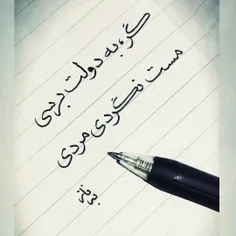 گر، به دولت برسی
مست نگردی مردی